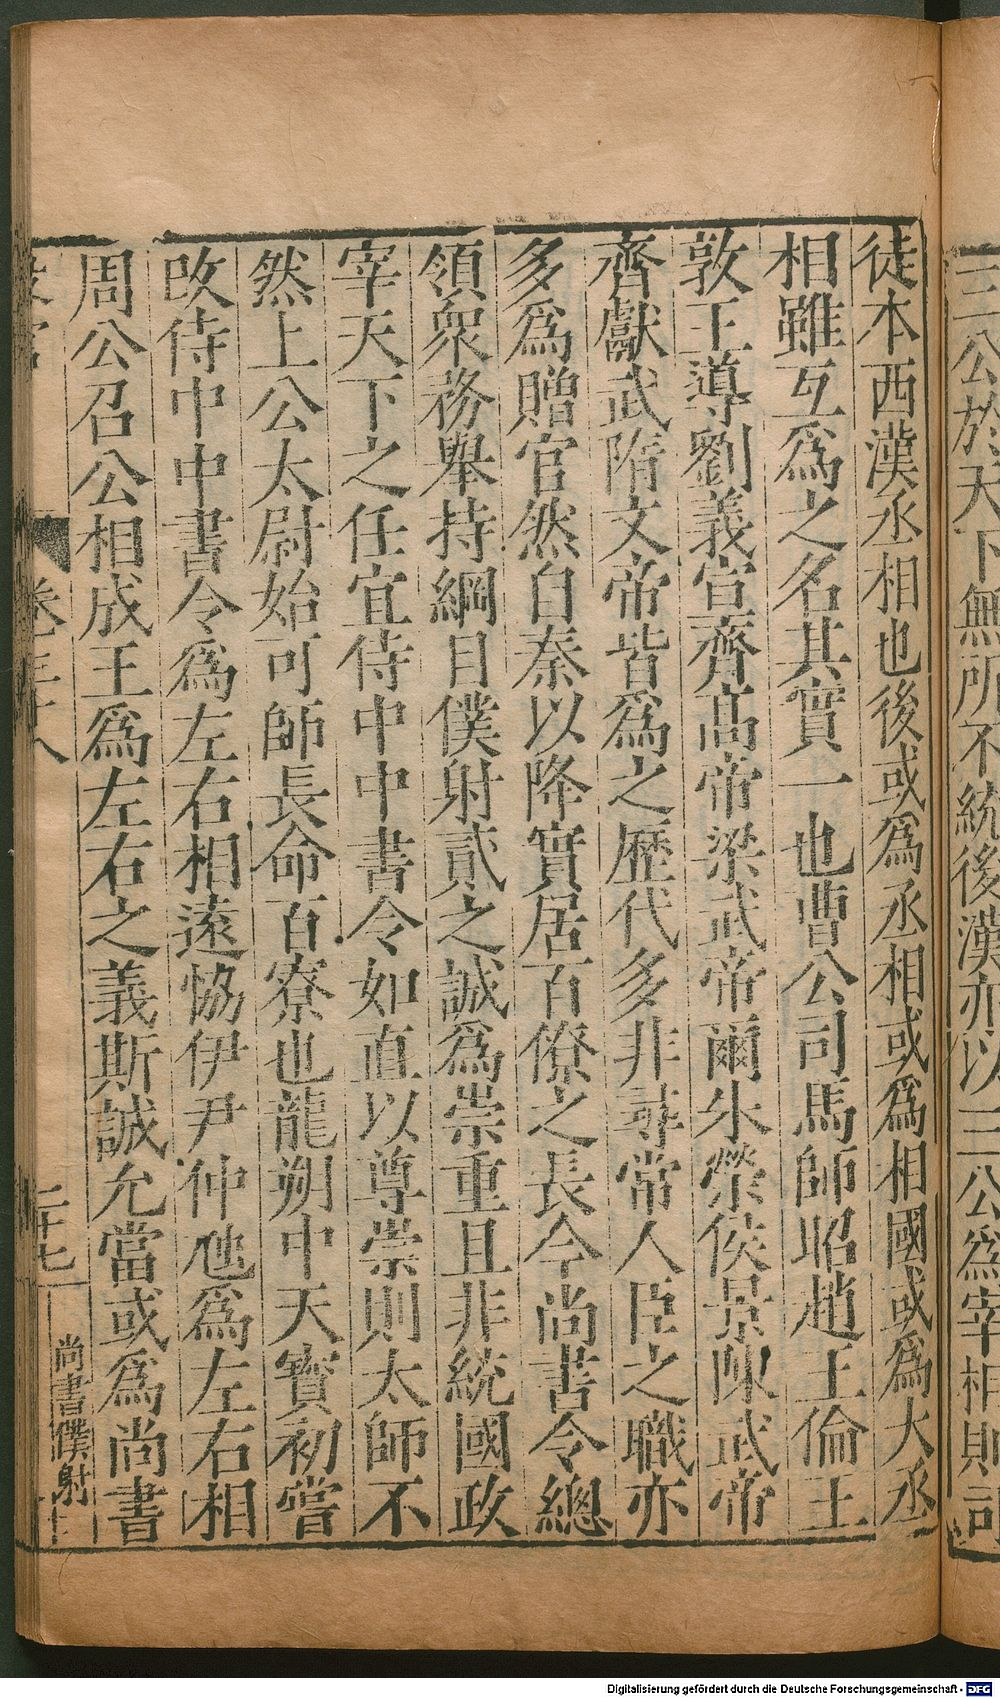 三公於天下無所不統後漢亦以三公爲宰相則司
徒本西漢丞相也後或爲丞相或爲相國或爲大丞
相雖互爲之名其實一也曹公司馬師昭趙王倫王
敦王導劉義宣齊高帝梁武帝爾朱榮侯景陳武帝
齊獻武隋文帝皆爲之歷代多非尋常人臣之職亦
多爲贈官然自秦以降實居百僚之長今尚書令總
領衆務舉持綱目僕射貳之誠爲崇重且非統國政
宰天下之任宜侍中中書令如直以尊崇則太師不
然上公太尉始可師長命百寮也龍朔中天寶初嘗
改侍中中書令爲左右相遠恊伊尹仲虺爲左右相
周公召公相成王爲左右之義斯誠允當或爲尚書
卷二十八
二十七
尚書僕射
Digitalisierung gefördert durch die Deutsche Forschungsgemeinschaft - DFG